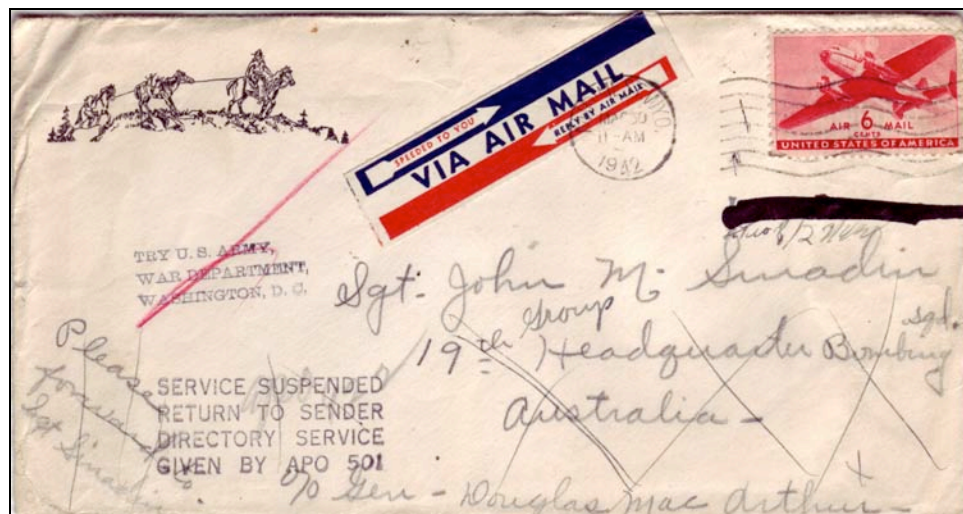 SPEEDED TO YOU
VIA AIR MAIL
REPLY BY AIR MAIL
WYO.
30
11-AM
1942
AIR 6 MAIL
CENTS
UNITED STATES OF AMERICA
TRY U.S. ARMY,
WAR DEPARTMENT,
WASHINGTON, D. C.
Sgt. John M. Smadin
Group
19th Headquarter Bombing Sqd.
Australia -
c/o Gen - Douglas Mac Arthur -
Please
forward to
Sgt Smadin
SERVICE SUSPENDED
RETURN TO SENDER
DIRECTORY SERVICE
GIVEN BY APO 501